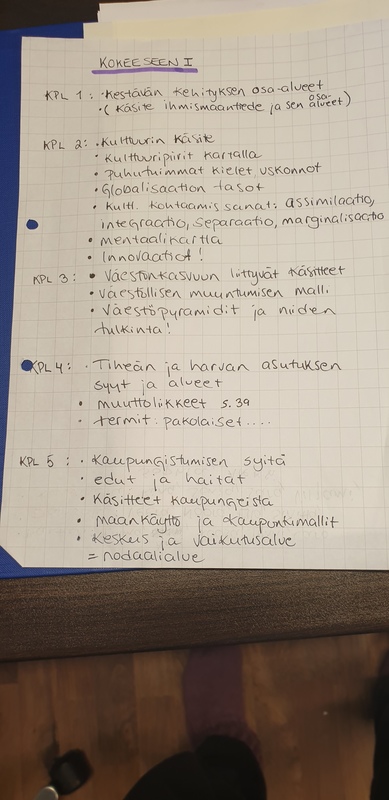 KOKEESEEN I
KPL 1: · Kestävän kehityksen osa-alueet
· (Käsite ihmismaantiede ja sen osa-alueet)
KPL 2: · Kulttuurin käsite
· Kulttuuripiirit kartalla
· Puhutuimmat kielet, uskonnot
· Globalisaation tasot
· Kultt. kohtaamis sanat: assimilaatio,
integraatio, separaatio, marginalisaatio
· mentaalikartta
· Innovaatiot!
KPL 3: · Väestönkasvuun liittyvät käsitteet
· väestöllisen muuntumisen malli
· Väestöpyramidit ja niiden
tulkinta!
KPL 4: · Tiheän ja harvan asutuksen
syyt ja alueet
· muuttoliikkeet s. 39
· termit: pakolaiset....
KPL 5: · Kaupungistumisen syitä
· edut ja haitat
· Käsitteet kaupungeista
· maankäyttö ja kaupunkimallit
· Keskus ja vaikutusalue
= nodaalialue